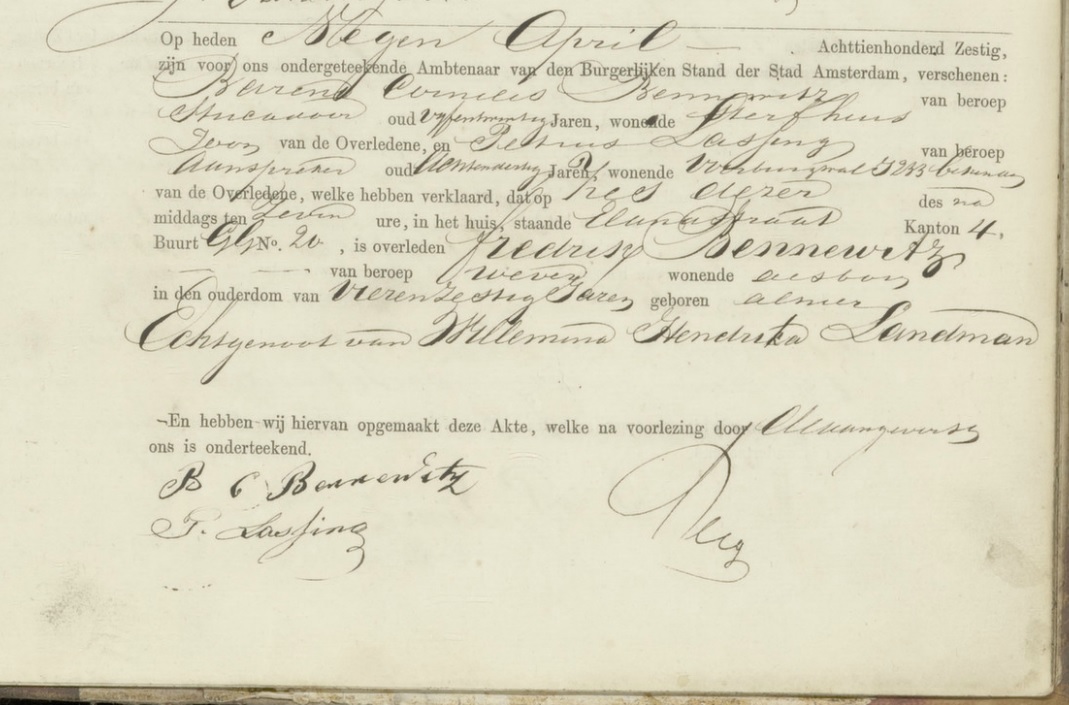 Op heden Negen April — Achttienhonderd Zestig,
zijn voor ons ondergeteekende Ambtenaar van den Burgerlijken Stand der Stad Amsterdam, verschenen:
Barend Cornelis Bennewitz van beroep
Stucadoor oud Vyfentwintig Jaren, wonende Sterfhuis
Zoon van de Overledene, en Petrus Lassing van beroep
Aanspreker oud Achtendertig Jaren, wonende Voorburgwal bekende
van de Overledene, welke hebben verklaard, dat op Zes dezer des na
middags ten Zeven ure, in het huis, staande Kanton 4.
Buurt GG No. 20, is overleden Fredrik Bennewitz
van beroep Wever wonende aldaar
in den ouderdom van Vierenzestig Jaren geboren alhier
Echtgenoot van Willemina Hendrika Landman
En hebben wij hiervan opgemaakt deze Akte, welke na voorlezing door de aangevers en
ons is onderteekend.
B C Bennewitz
P. Lassing